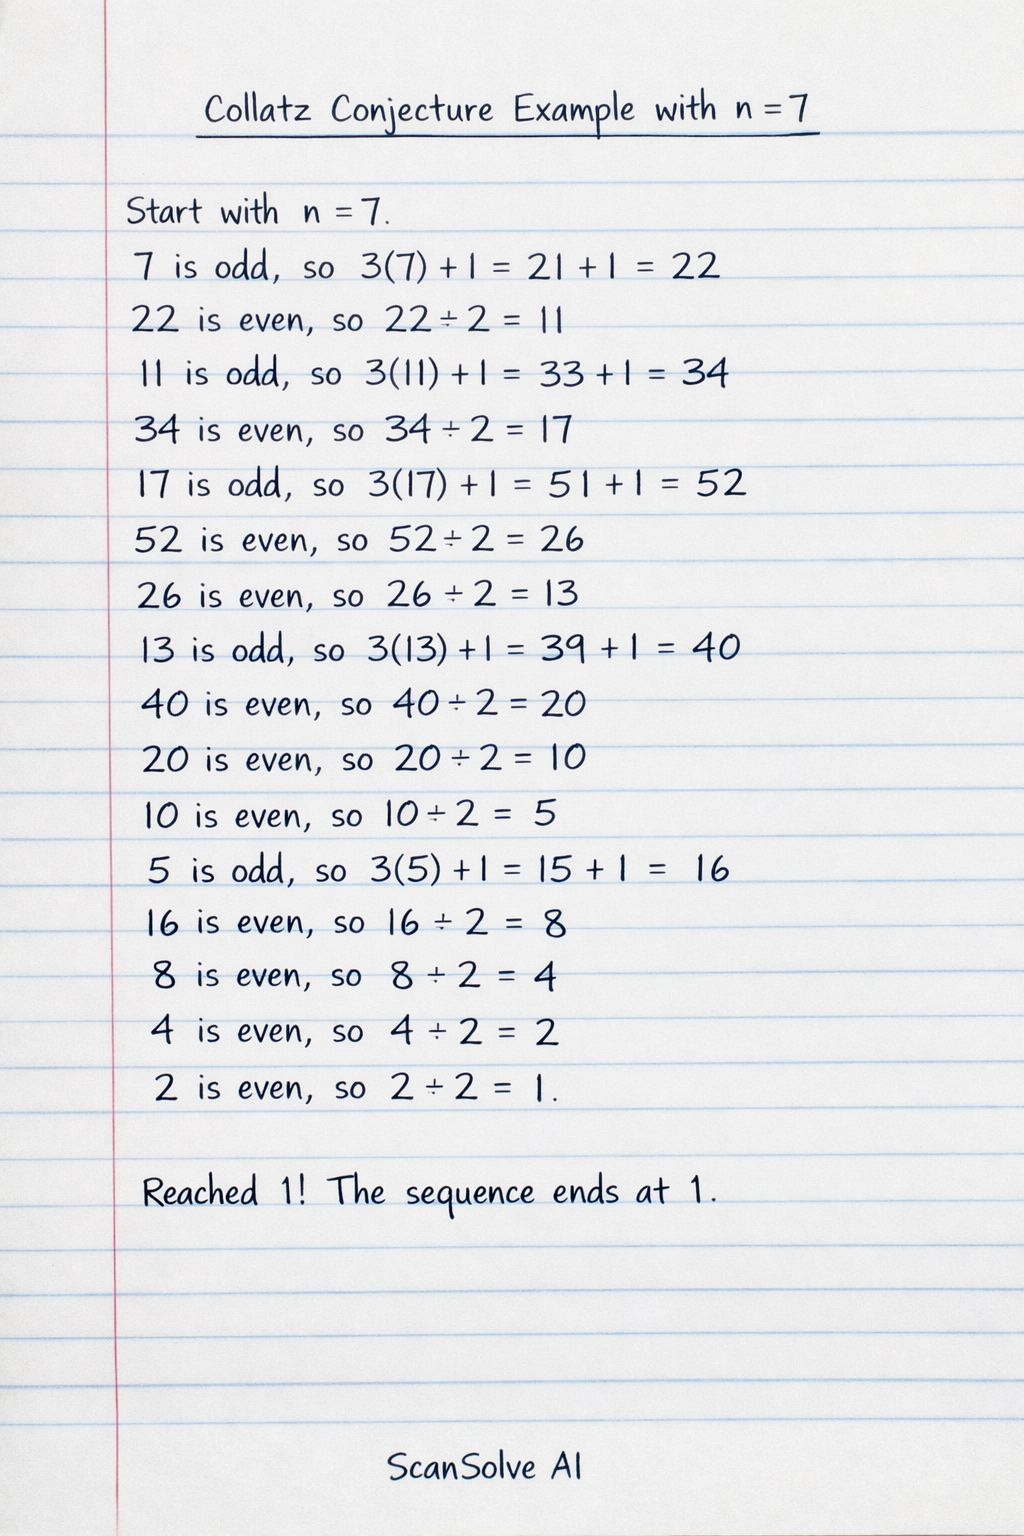 Collatz Conjecture Example with n = 7
Start with n = 7.
7 is odd, so 3(7) + 1 = 21 + 1 = 22
22 is even, so 22 ÷ 2 = 11
11 is odd, so 3(11) + 1 = 33 + 1 = 34
34 is even, so 34 ÷ 2 = 17
17 is odd, so 3(17) + 1 = 51 + 1 = 52
52 is even, so 52 ÷ 2 = 26
26 is even, so 26 ÷ 2 = 13
13 is odd, so 3(13) + 1 = 39 + 1 = 40
40 is even, so 40 ÷ 2 = 20
20 is even, so 20 ÷ 2 = 10
10 is even, so 10 ÷ 2 = 5
5 is odd, so 3(5) + 1 = 15 + 1 = 16
16 is even, so 16 ÷ 2 = 8
8 is even, so 8 ÷ 2 = 4
4 is even, so 4 ÷ 2 = 2
2 is even, so 2 ÷ 2 = 1.
Reached 1! The sequence ends at 1.
ScanSolve AI